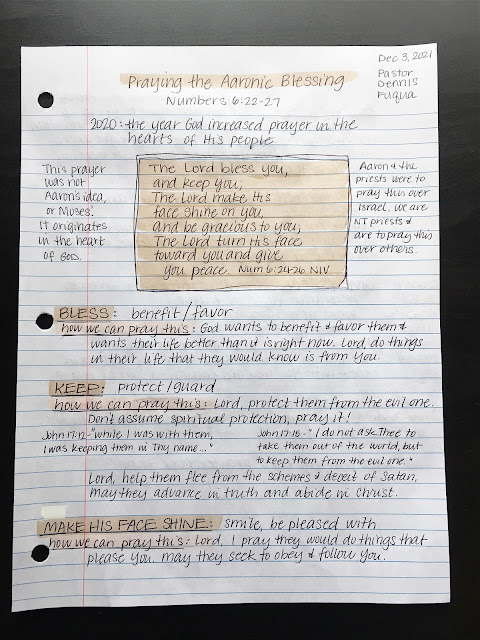 Dec 3, 2021
Pastor
Dennis
Fuqua
Praying the Aaronic Blessing
Numbers 6:22-27
2020: the year God increased prayer in the
hearts of His people.
This prayer
was not
Aaron's idea,
or Moses'.
It originates
in the heart
of God.
The Lord bless you,
and keep you,
The Lord make His
face shine on you,
and be gracious to you,
The Lord turn His face
toward you and give
you peace. Num 6:24-26 NIV
Aaron & the
priests were to
pray this over
Israel. We are
NT priests &
are to pray this
over others.
BLESS: benefit/favor
how we can pray this: God wants to benefit & favor them &
wants their life better than it is right now. Lord, do things
in their life that they would know is from You.
KEEP: protect/guard
how we can pray this: Lord, protect them from the evil one.
Don't assume spiritual protection, pray it!
John 17:12 - "While I was with them,
I was keeping them in Thy name..."
John 17:15 - "I do not ask Thee to
take them out of the world, but
to keep them from the evil one."
Lord, help them flee from the schemes & deceit of Satan,
may they advance in truth and abide in Christ.
MAKE HIS FACE SHINE: smile, be pleased with
how we can pray this: Lord, I pray they would do things that
please You. May they seek to obey & follow You.